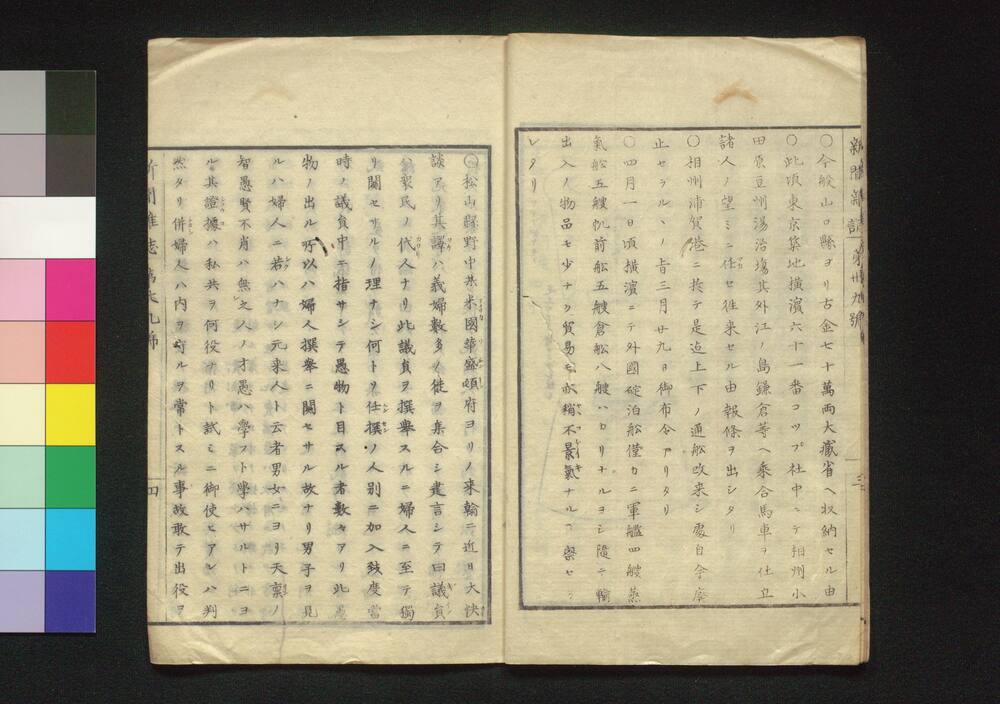 新聞雑誌 第卅九號
三
〇今般山口縣ヨリ古金七十萬両大藏省ヘ収納セル由
〇此頃東京築地横濱六十一番コッブ社中ニテ相州小
田原豆州湯治塲其外江ノ島鎌倉等ヘ乗合馬車ヲ仕立
諸人ノ望ミニ任セ徃来セル由報條ヲ出シタリ
〇相州浦賀港ニ於テ是迠上下ノ通舩改来シ處自今廢
止セラルヽノ旨三月廿九日御布令アリタリ
〇四月一日頃横濱ニテ外國碇泊舩僅カニ軍艦四艘蒸
氣舩五艘帆前舩五艘倉舩八艘ハカリナルヨシ随テ輸
出入ノ物品モ少ナク貿易モ亦稍不景氣ナルヿ察セラ
レタリ
〇松山縣野中某米國華盛頓府ヨリノ来翰ニ近日大快
談アリ其譯ハ義婦数多ノ徒ヲ集合シ建言シテ曰議貟
ハ衆民ノ代人ナリ此議貟ヲ撰舉スルニ婦人ニ至テ獨
リ關セサルノ理ナシ何トソ任撰ノ人別ニ加入致度當
時ノ議貟中ニ指サシテ愚物ト目スル者數々アリ此愚
物ノ出ル所以ハ婦人撰舉ニ關セサル故ナリ男子ヲ見
ルハ婦人ニ若ハナシ元来人ト云者男女ニヨリ天稟ノ
智愚賢不肖ハ無之人ノ才愚ハ學フト學ハサルトニヨ
ル其證據ハ私共ヲ何役ナリト試ミニ御使ヒアレハ判
然タリ併婦人ハ内ヲ守ルヲ常トスル事故敢テ出役ヲ
新聞雑誌 第卅九號
四